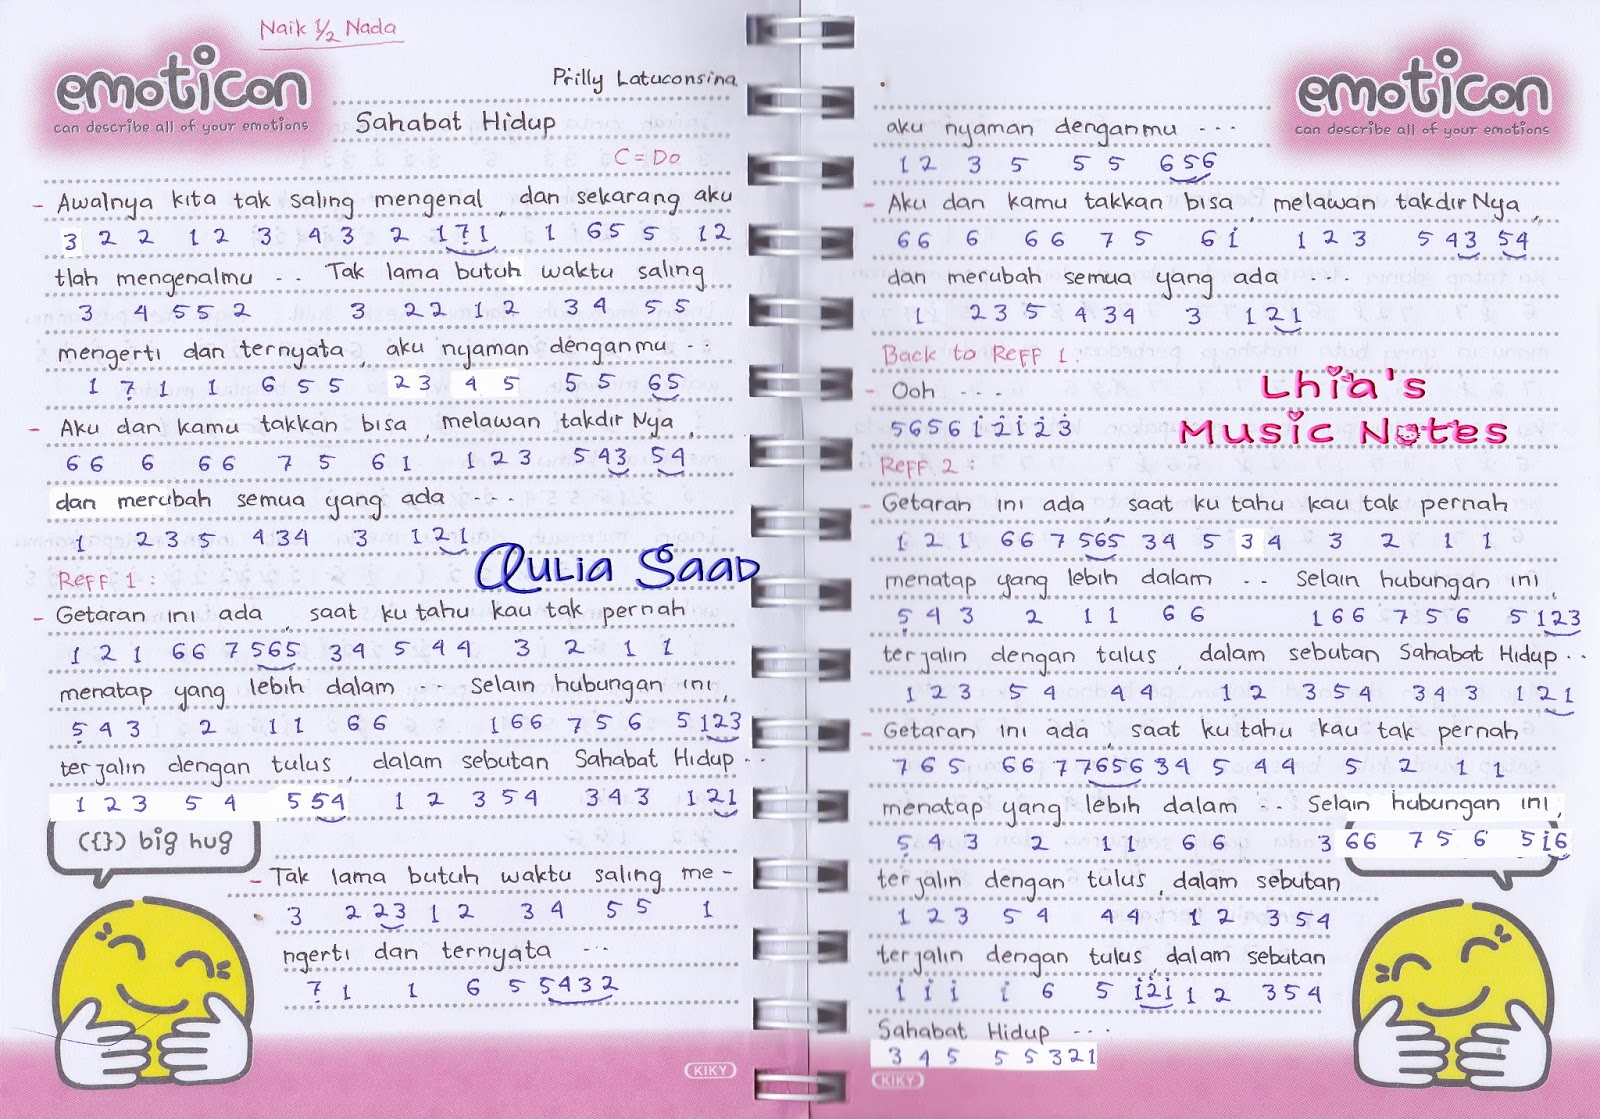 Naik ½ Nada
emoticon
can describe all of your emotions
Prilly Latuconsina
Sahabat Hidup
C = Do
- Awalnya kita tak saling mengenal, dan sekarang aku
3 2 2 1 2 3 4 3 2 1 7̣ 1 1 6 5 5 1 2
tlah mengenalmu .. Tak lama butuh waktu saling
3 4 5 5 2 3 2 2 1 2 3 4 5 5
mengerti dan ternyata, aku nyaman denganmu ..
1 7̣ 1 1 6 5 5 2 3 4 5 5 5 6 5
- Aku dan kamu takkan bisa, melawan takdir Nya,
6 6 6 6 6 7 5 6 1 1 2 3 5 4 3 5 4
dan merubah semua yang ada ....
1 2 3 5 4 3 4 3 1 2 1
Qulia Saad
Reff 1 :
- Getaran ini ada, saat ku tahu kau tak pernah
1 2 1 6 6 7 5 6 5 3 4 5 4 4 3 2 1 1
menatap yang lebih dalam Selain hubungan ini,
5̣ 4 3 2 1 1 6 6 1 6 6 7 5 6 5 1 2 3
terjalin dengan tulus, dalam sebutan Sahabat Hidup ..
1 2 3 5 4 5 5 4 1 2 3 5 4 3 4 3 1 2 1
({}) big hug
- Tak lama butuh waktu saling me -
3 2 2 3 1 2 3 4 5 5 1
ngerti dan ternyata ...
7̣ 1 1 6 5 5 4 3 2
KIKY
emoticon
can describe all of your emotions
aku nyaman denganmu ...
1 2 3 5 5 5 6 5 6
- Aku dan kamu takkan bisa, melawan takdir Nya,
6 6 6 6 6 7 5 6 i 1 2 3 5 4 3 5 4
dan merubah semua yang ada ...
1 2 3 5 4 3 4 3 1 2 1
Back to Reff 1
- Ooh ...
5 6 5 6 i 2̇ i 2̇ 3̇
Lhia's
Music Notes
Reff 2 :
- Getaran ini ada, saat ku tahu kau tak pernah
1 2 1 6 6 7 5 6 5 3 4 5 3 4 3 2 1 1
menatap yang lebih dalam .. Selain hubungan ini,
5̣ 4 3 2 1 1 6 6 1 6 6 7 5 6 5 1 2 3
terjalin dengan tulus, dalam sebutan Sahabat Hidup ..
1 2 3 5 4 4 4 1 2 3 5 4 3 4 3 1 2 1
- Getaran ini ada, saat ku tahu kau tak pernah
7 6 5 6 6 7 7 6 5 6 3 4 5 4 4 5 2 1 1
menatap yang lebih dalam .. Selain hubungan ini,
5̣ 4 3 2 1 1 6 6 3 6 6 7 5 6 5 i 6
terjalin dengan tulus, dalam sebutan
1 2 3 5 4 4 4 1 2 3 5 4
terjalin dengan tulus, dalam sebutan
i i i i 6 5 i 2̇ i 1 2 3 5 4
Sahabat Hidup ...
3 4 5 5 5 3 2 1
KIKY